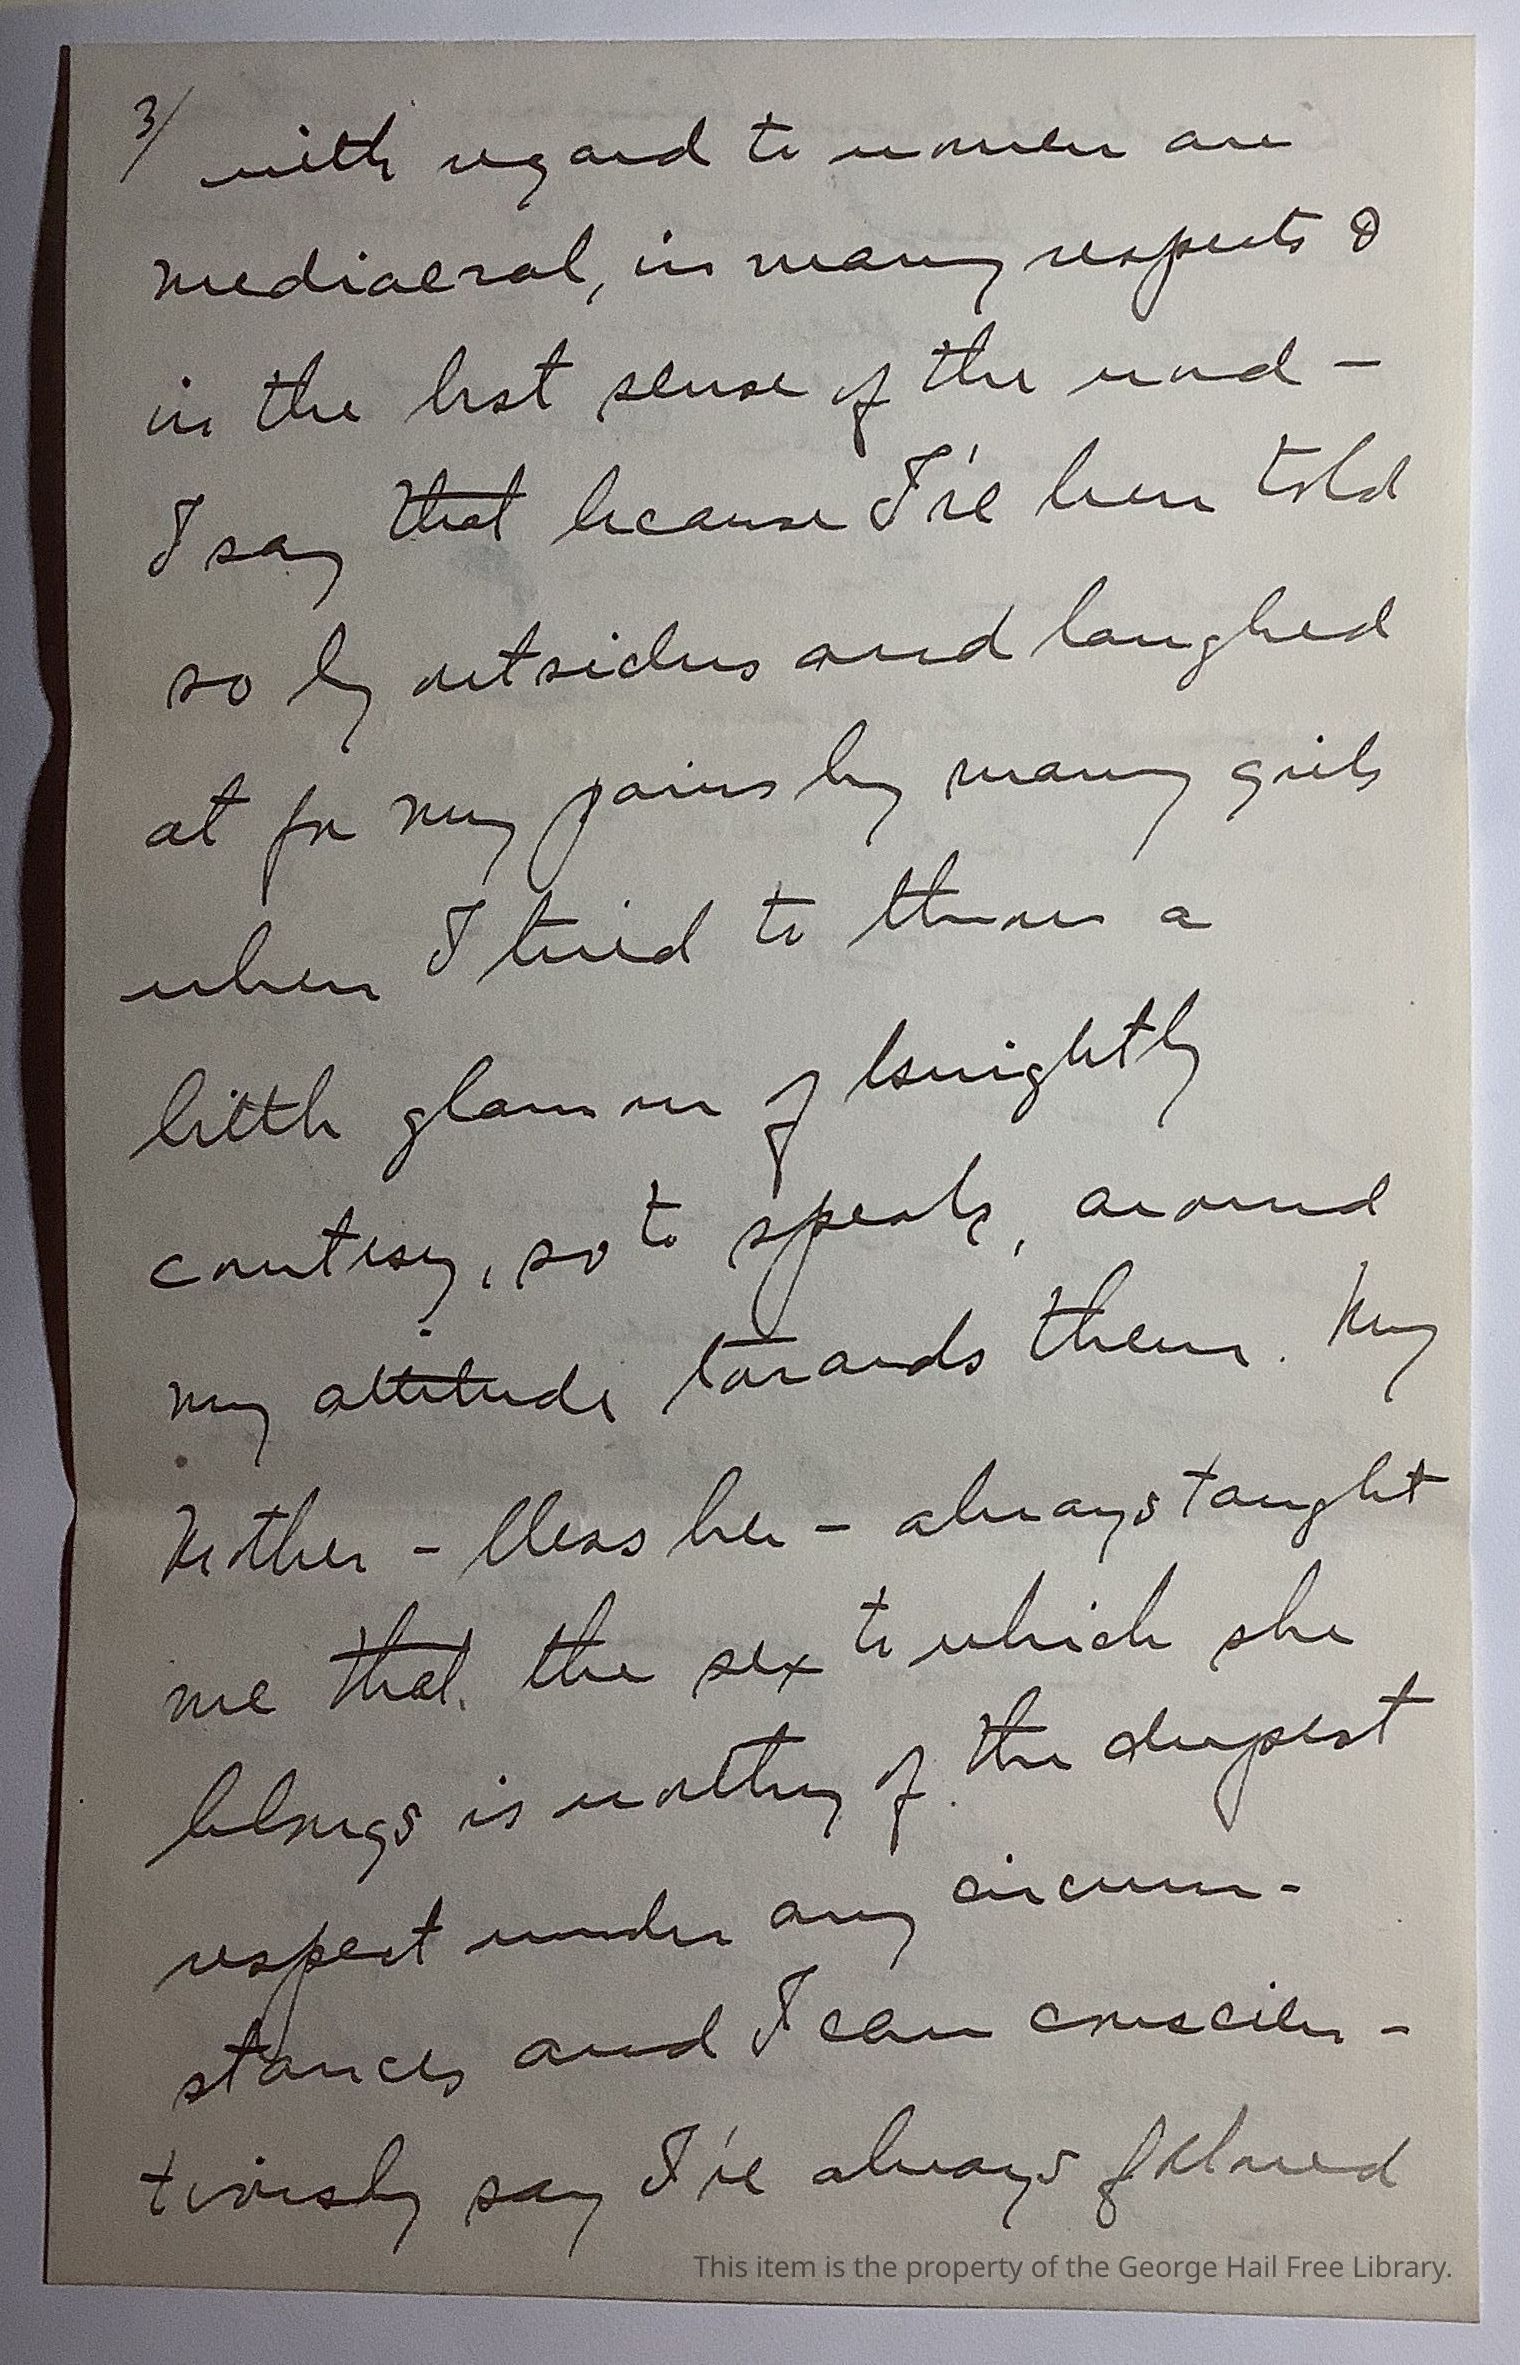 3/ with regard to women are
mediaeval, in many respects &
in the best sense of the word –
I say that because I've been told
so by outsiders and laughed
at for my pains by many girls
when I tried to throw a
little glamour of knightly
courtesy, so to speak, around
my attitude towards them. My
Mother – bless her – always taught
me that the sex to which she
belongs is worthy of the deepest
respect under any circum-
stances and I can conscien-
tiously say I've always followed
This item is the property of the George Hail Free Library.